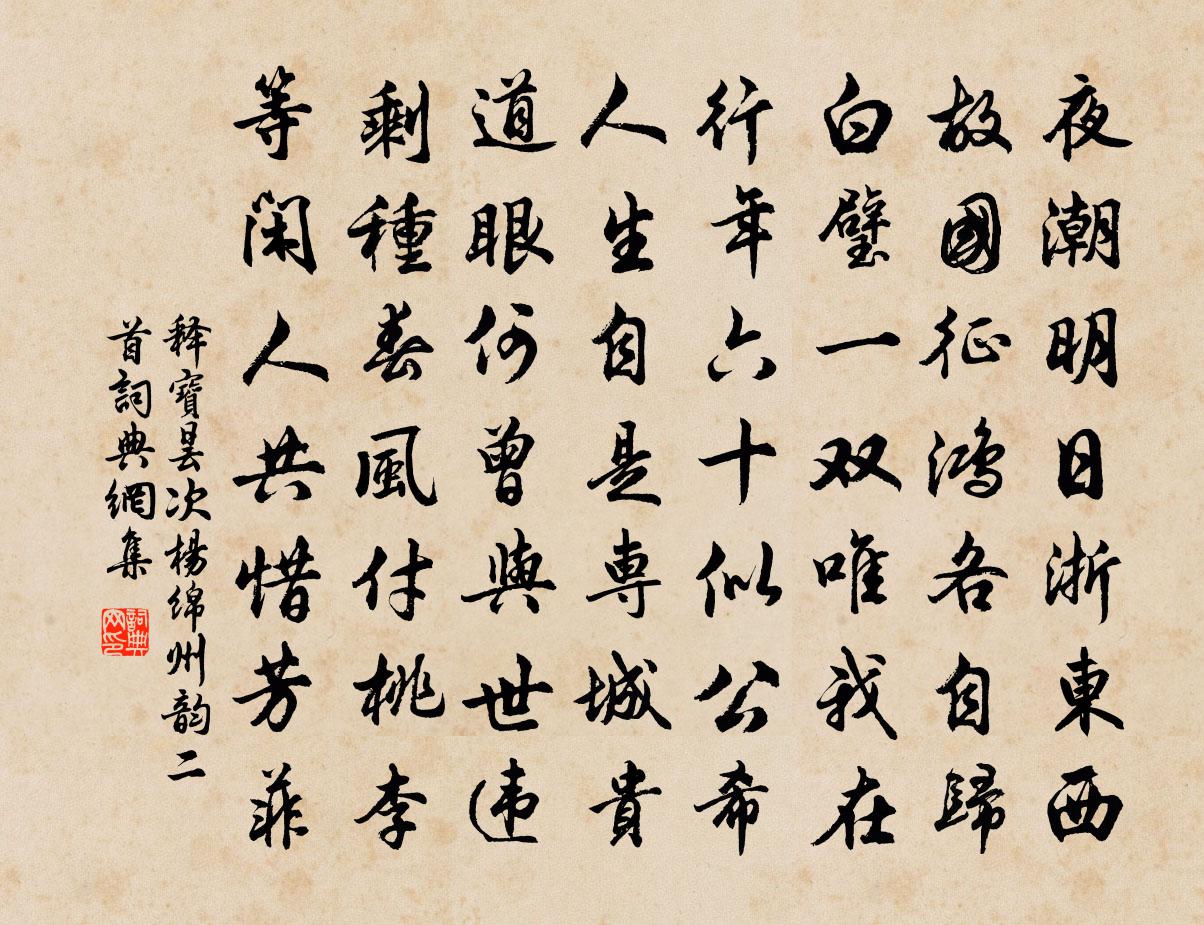 夜潮明日浙東西
故國征鴻各自歸
白璧一双唯我在
行年六十似公希
人生自是専城貴
道眼何曾與世违
剩種春風付桃李
等閑人共惜芳菲
释寶曇次楊绵州韵二
首詞典網集
詞典网印